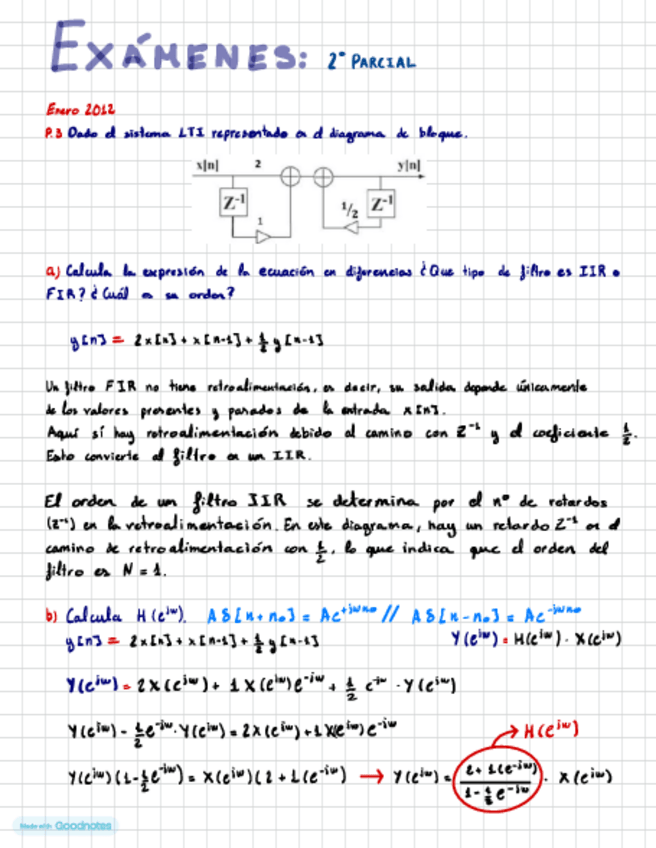 EXÁMENES: 2º PARCIAL
Enero 2012
P.3 Dado el sistema LTI representado en el diagrama de bloque.
x[n] 2 y[n]
Z⁻¹ 1/2 Z⁻¹
1
a) Calcula la expresión de la ecuación en diferencias ¿Que tipo de filtro es IIR o
FIR? ¿Cuál es su orden?
y[n] = 2x[n] + x[n-1] + 1/2 y[n-1]
Un filtro FIR no tiene retroalimentación, es decir, su salida depende únicamente
de los valores presentes y pasados de la entrada x[n].
Aquí sí hay retroalimentación debido al camino con Z⁻¹ y el coeficiente 1/2.
Esto convierte al filtro en un IIR.
El orden de un filtro IIR se determina por el nº de retardos
(Z⁻¹) en la retroalimentación. En este diagrama, hay un retardo Z⁻¹ en el
camino de retroalimentación con 1/2, lo que indica que el orden del
filtro es N = 1.
b) Calcula H(e^jw). Aδ[n+n₀] = Ae^+jwn₀ // Aδ[n-n₀] = Ae^-jwn₀
y[n] = 2x[n] + x[n-1] + 1/2 y[n-1] Y(e^jw) = H(e^jw) · X(e^jw)
Y(e^jw) = 2X(e^jw) + 1X(e^jw)e^-jw + 1/2 e^-jw · Y(e^jw)
Y(e^jw) - 1/2 e^-jw · Y(e^jw) = 2X(e^jw) + 1X(e^jw)e^-jw
→ H(e^jw)
Y(e^jw)(1 - 1/2 e^-jw) = X(e^jw)(2 + 1(e^-jw) → Y(e^jw) = (2 + 1(e^-jw))/(1 - 1/2 e^-jw) · X(e^jw)
Made with Goodnotes